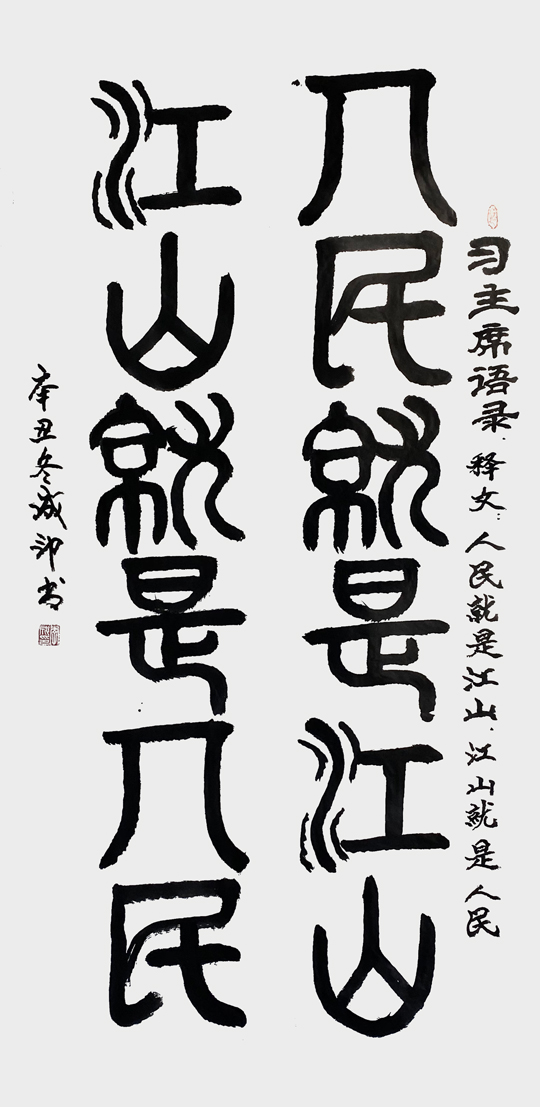 习主席语录.释文:人民就是江山.江山就是人民
人民就是江山
江山就是人民
辛丑冬成印书